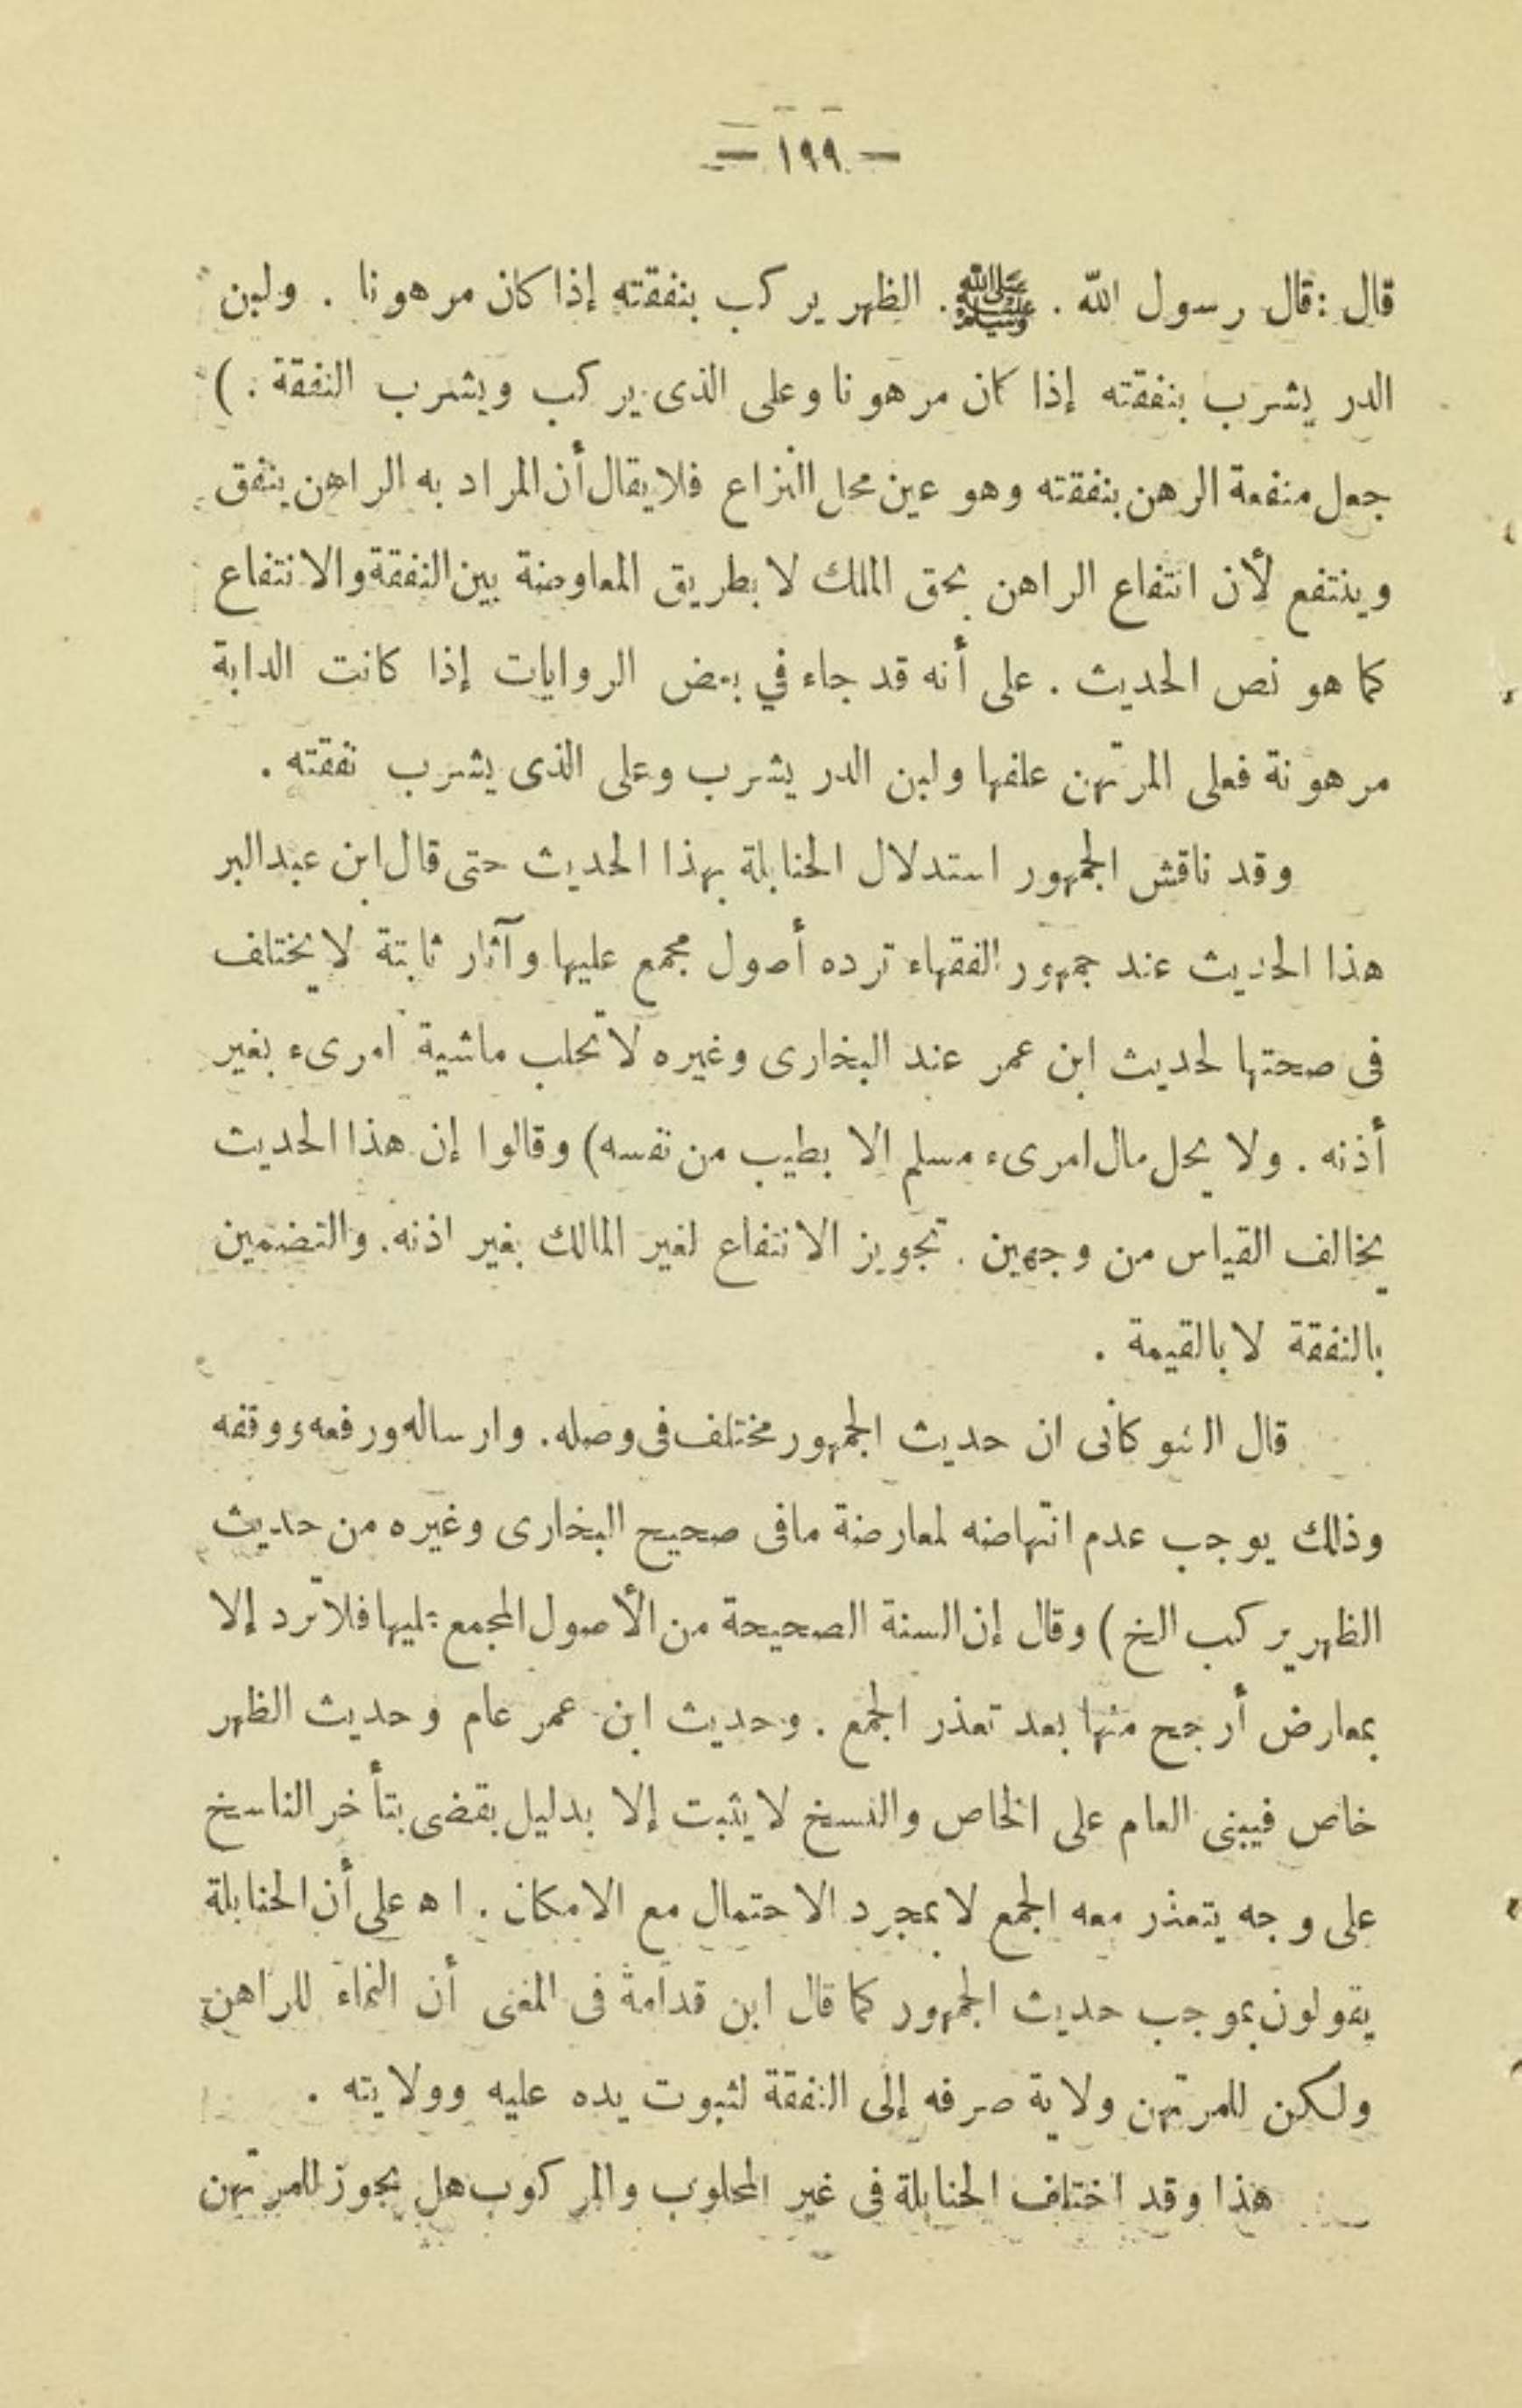 — ١٩٩ —
قال : قال رسول الله . ﷺ . الظهر يركب بنفقته إذا كان مرهونا . ولبن
الدر يشرب بنفقته إذا كان مرهونا وعلى الذى يركب ويشرب النفقة . )
جعل منفعة الرهن بنفقته وهو عين محل النزاع فلا يقال أن المراد به الراهن ينفق
وينتفع لأن انتفاع الراهن بحق الملك لا بطريق المعاوضة بين النفقة والانتفاع
كما هو نص الحديث . على أنه قد جاء في بعض الروايات إذا كانت الدابة
مرهونة فعلى المرتهن علفها ولبن الدر يشرب وعلى الذى يشرب نفقته .
وقد ناقش الجمهور استدلال الحنابلة بهذا الحديث حتى قال ابن عبد البر
هذا الحديث عند جمهور الفقهاء ترده أصول مجمع عليها وآثار ثابتة لا يختلف
فى صحتها لحديث ابن عمر عند البخارى وغيره لا تحلب ماشية امرىء بغير
أذنه . ولا يحل مال امرىء مسلم إلا بطيب من نفسه ) وقالوا إن هذا الحديث
يخالف القياس من وجهين . تجويز الانتفاع لغير المالك بغير اذنه . والتضمين
بالنفقة لا بالقيمة .
قال الشوكانى ان حديث الجمهور مختلف فى وصله . وارساله ورفعه ووقفه
وذلك يوجب عدم انتهاضه لمعارضة مافى صحيح البخارى وغيره من حديث
الظهر يركب الخ ) وقال إن السنة الصحيحة من الأصول المجمع عليها فلا ترد إلا
بمعارض أرجح منها بعد تعذر الجمع . وحديث ابن عمر عام وحديث الظهر
خاص فيبنى العام على الخاص والنسخ لا يثبت إلا بدليل يقضى بتأخر الناسخ
على وجه يتعذر معه الجمع لا بمجرد الاحتمال مع الامكان . ا ه على أن الحنابلة
يقولون بموجب حديث الجمهور كما قال ابن قدامة فى المغنى أن النماء للراهن
ولكن للمرتهن ولاية صرفه إلى النفقة لثبوت يده عليه وولايته .
هذا وقد اختلف الحنابلة فى غير المحلوب والمركوب هل يجوز للمرتهن